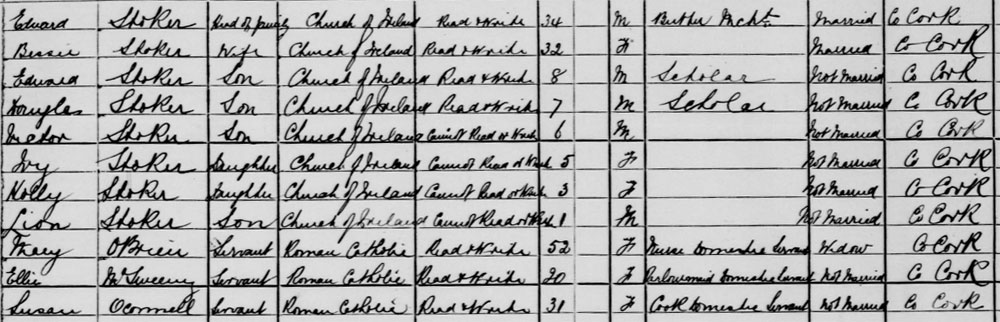 Edward Shoker Head of family Church of Ireland Read & Write 34 M Butter Mcht Married Co Cork
Bessie Shoker Wife Church of Ireland Read & Write 32 F Married Co Cork
Edward Shoker Son Church of Ireland Read & Write 8 M Scholar Not Married Co Cork
Douglas Shoker Son Church of Ireland Read & Write 7 M Scholar Not Married Co Cork
Victor Shoker Son Church of Ireland Cannot Read or Write 6 M Not Married Co Cork
Ivy Shoker Daughter Church of Ireland Cannot Read or Write 5 F Not Married Co Cork
Holly Shoker Daughter Church of Ireland Cannot Read or Write 3 F Not Married Co Cork
Lion Shoker Son Church of Ireland Cannot Read or Write 1 M Not Married Co Cork
Mary O'Brien Servant Roman Catholic Read & Write 52 F Nurse Domestic Servant Widow Co Cork
Ellie McSweeny Servant Roman Catholic Read & Write F Parlourmaid Domestic Servant Not Married Co Cork
Susan OConnell Servant Roman Catholic Read & Write 31 F Cook Domestic Servant Not Married Co Cork